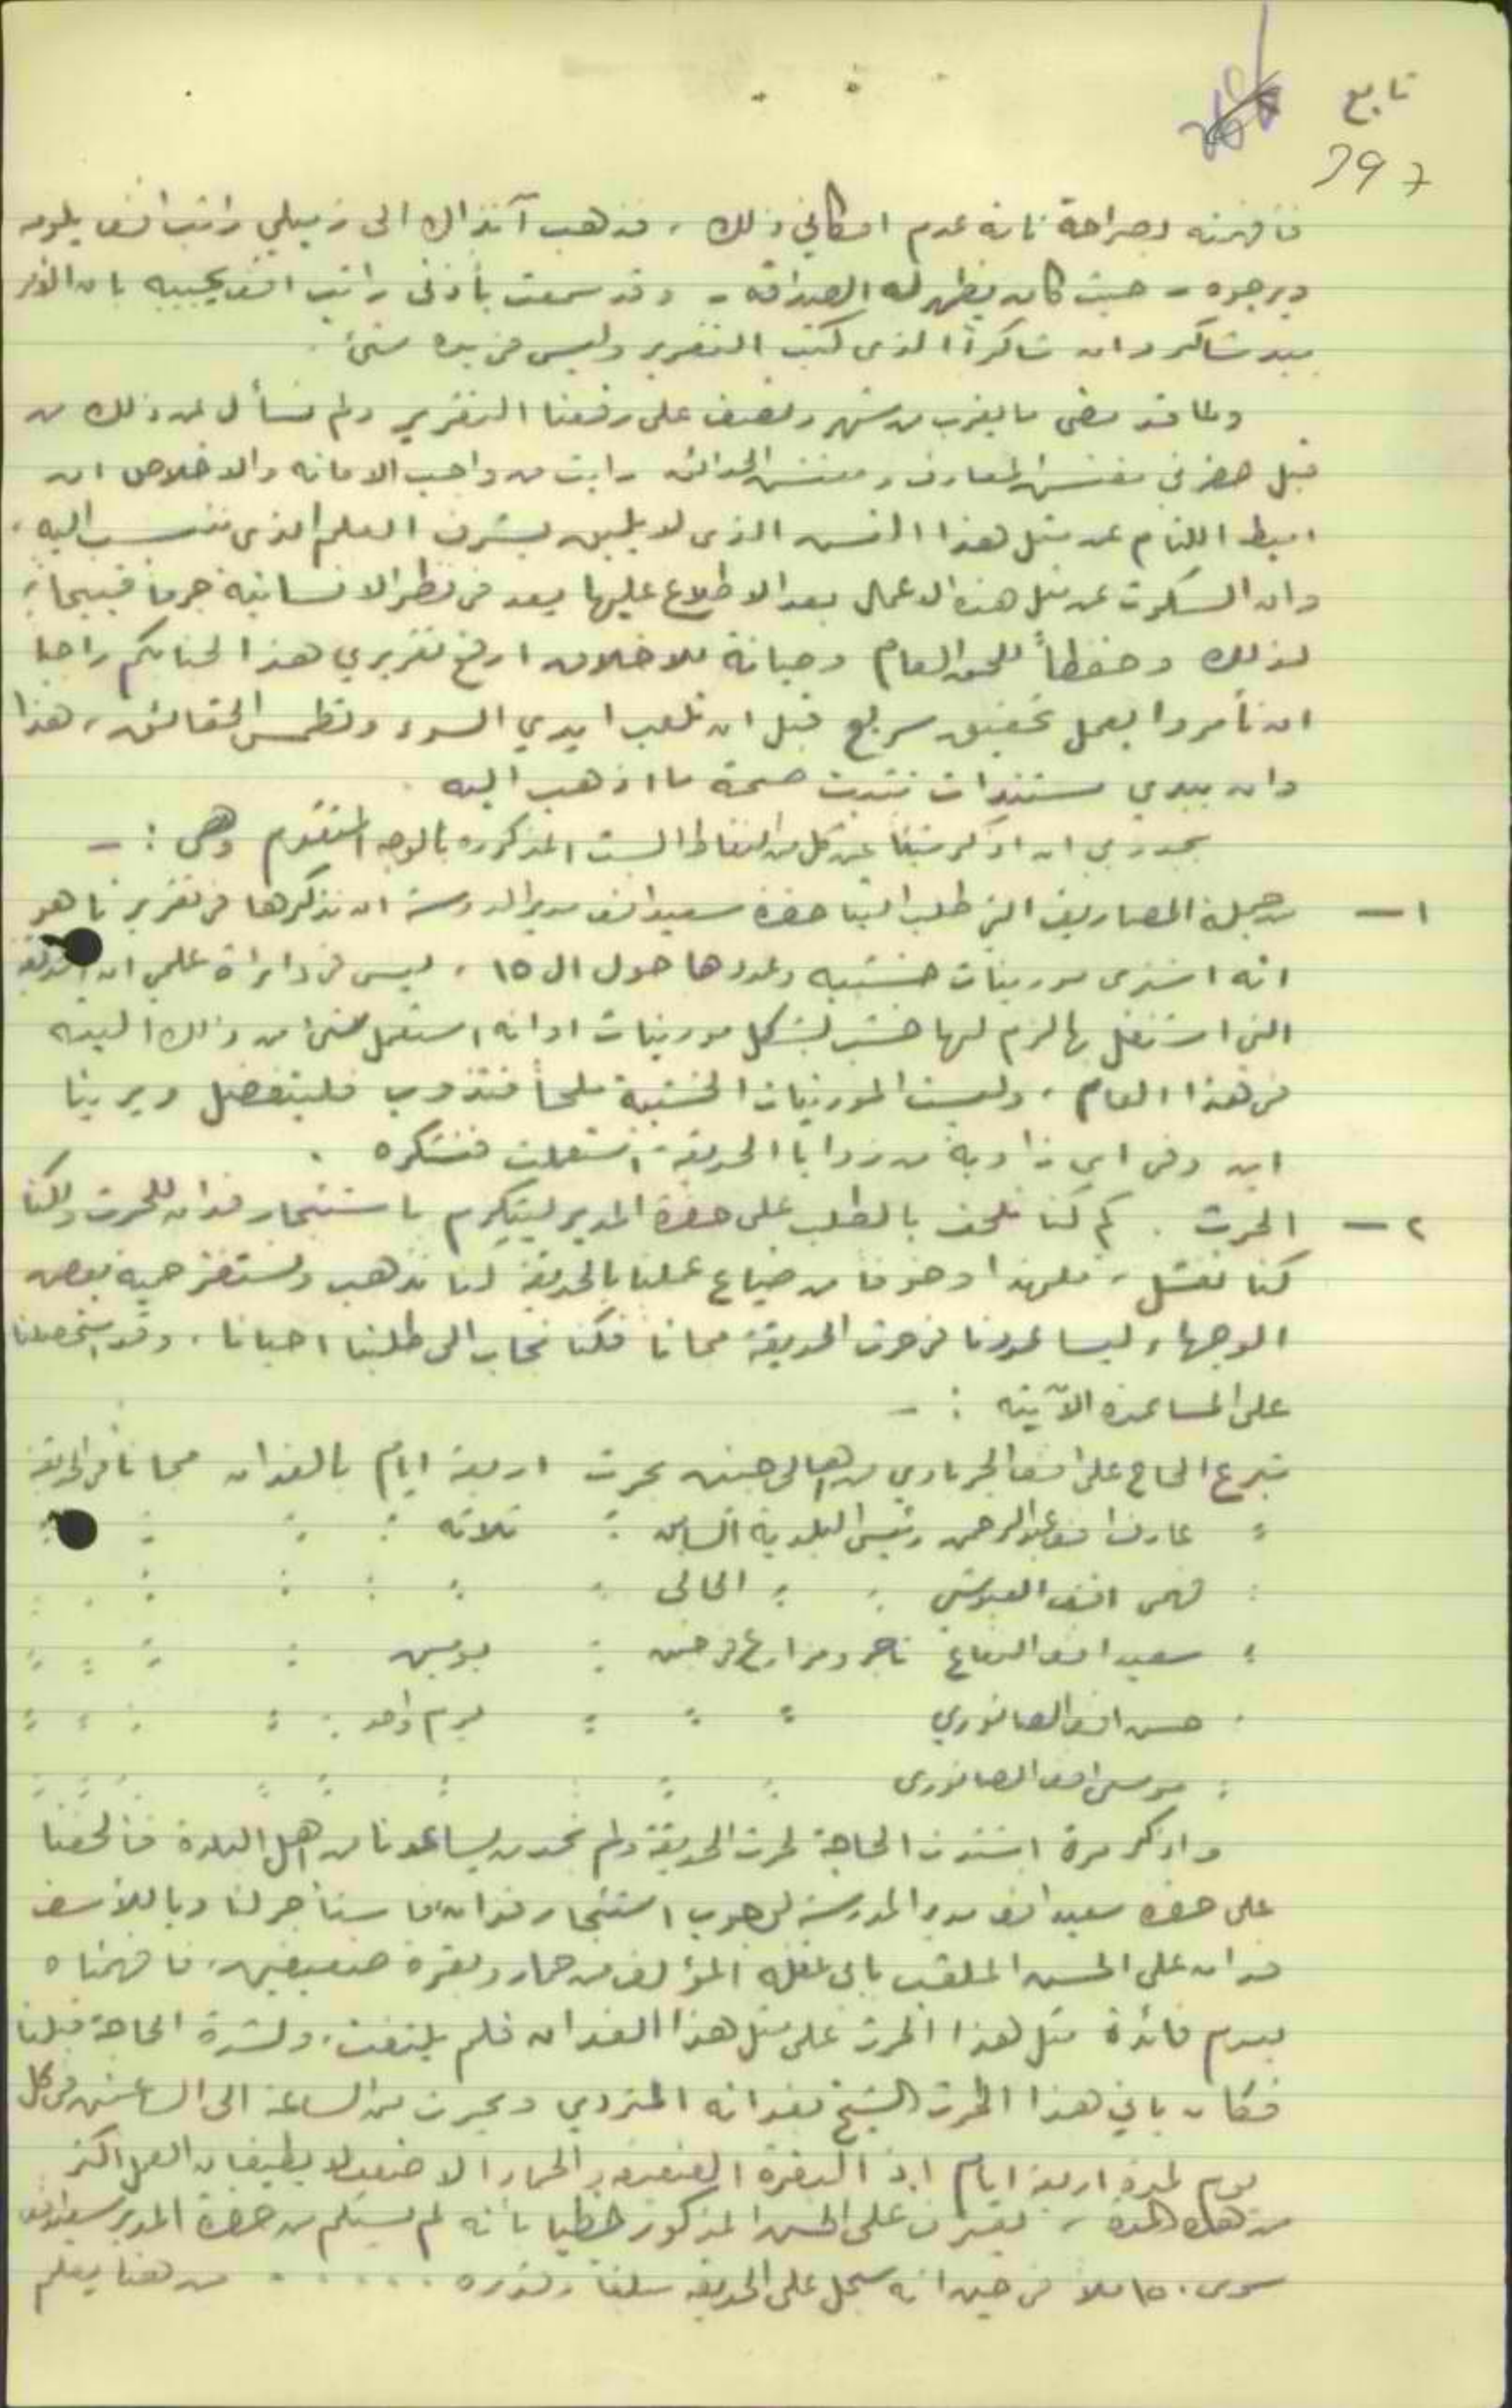 تابع
297
فافهمته بصراحة بانه عدم امكاني ذلك ، فذهب آنذاك الى زميلي راتب افندي يلومه
ويرجوه - حيث كان يظهر له الصداقة - وقد سمعت بأذني راتب افندي يجيبه بان الامر
بيد شاكر وان شاكراً الذي كتب التقرير وليس في يده شئ .
ولما قد مضى ما يقرب من شهر ونصف على رفعنا التقرير ولم نسأل عن ذلك من
قبل حضرتي مفتش المعارف ومفتش الحدائق رايت من واجب الامانه والاخلاص ان
اميط اللثام عن مثل هذا الذى لا يليق بشرف العلم الذى ننتسب اليه ،
وان السكوت عن مثل هذه الاعمال بعد الاطلاع عليها يعد في نظر الانسانية جرماً قبيحاً ،
لذلك وحفظاً للحق العام وصيانة للاخلاق ارفع تقريري هذا لجنابكم راجيا
ان تأمروا بعمل تحقيق سريع قبل ان تلعب ايدي السوء وتطمس الحقائق ، هذا
وان بيدي مستندات تثبت صحة ما اذهب اليه .
يجدر بي ان اذكر شيئا عن كل من النقاط الست المذكورة بالوجه المتقدم وهي : -
١ - من جملة المصاريف التي طلب الينا حضرة سعيد افندي مدير المدرسة ان نذكرها في تقريرنا هو
انه اشترى مورينات خشبيه وعددها حول ال ١٥ ، ليس في دائرة علمي ان الحديقة
التي اشتغل بها لزم لها خشب بشكل مورينات او انه استعمل شئ من ذلك البته
في هذا العام ، وليست المورينات الخشبية ملحاً فتذوب فليتفضل ويرينا
اين وفي اي زاوية من زوايا الحديقة استعملت فنشكره .
٢ - الحرث . كم كنا نلحف بالطلب على حضرة المدير ليتكرم باستئجار فدان للحرث ولكنا
كنا نفشل ، فلهذا وخوفا من ضياع عملنا بالحديقة كنا نذهب ونستفز حمية بعض
الوجهاء ليساعدونا في حرث الحديقة مجانا فكنا نجاب الى طلبنا احيانا ، وقد استحصلنا
على المساعدة الآتيه : -
تبرع الحاج على افندي الجرباوي من اهالي جنين بحرث اربعة ايام بالفدان مجانا في الحديقة
" عارف افندي عبد الرحمن رئيس البلدية السابق " ثلاثه " " " "
" فهمي افندي العبوشي " " الحالي " " " " " " "
" سعيد افندي تاجر ومزارع في جنين " يومين " " " "
" حسن افندي الصانوري " " " يوم واحد " " " " "
" موسى افندي الصانورى " " " " " " " " "
واذكر مرة اشتدت الحاجة لحرث الحديقة ولم نجد من يساعدنا من اهل البلدة فالحفنا
على حضرة سعيد افندي مدير المدرسة لوجوب استئجار فدان فاستأجر لنا وياللأسف
فدان على الحسن الملقب المؤلف من حمار وبقرة ضعيفين ، فافهمناه
بعدم فائدة مثل هذا الحرث على مثل هذا الفدان فلم يلتفت ، ولشدة الحاجة قبلنا
فكان ياتي هذا الحراث الشيخ بفدانه المتردي ويحرث من الساعة الى العاشرة في كل
يوم لمدة اربعة ايام اذ البقرة الضعيفة والحمار الاضعف لا يطيقان العمل اكثر
من هذه المدة ، يعترف على الحسن المذكور خطيا بانه لم يستلم من حضرة المدير سعيد افندي
سوى ١٥٠ ملا في حين انه سجل على الحديقة مبلغا وقدره ...... من هنا يعلم